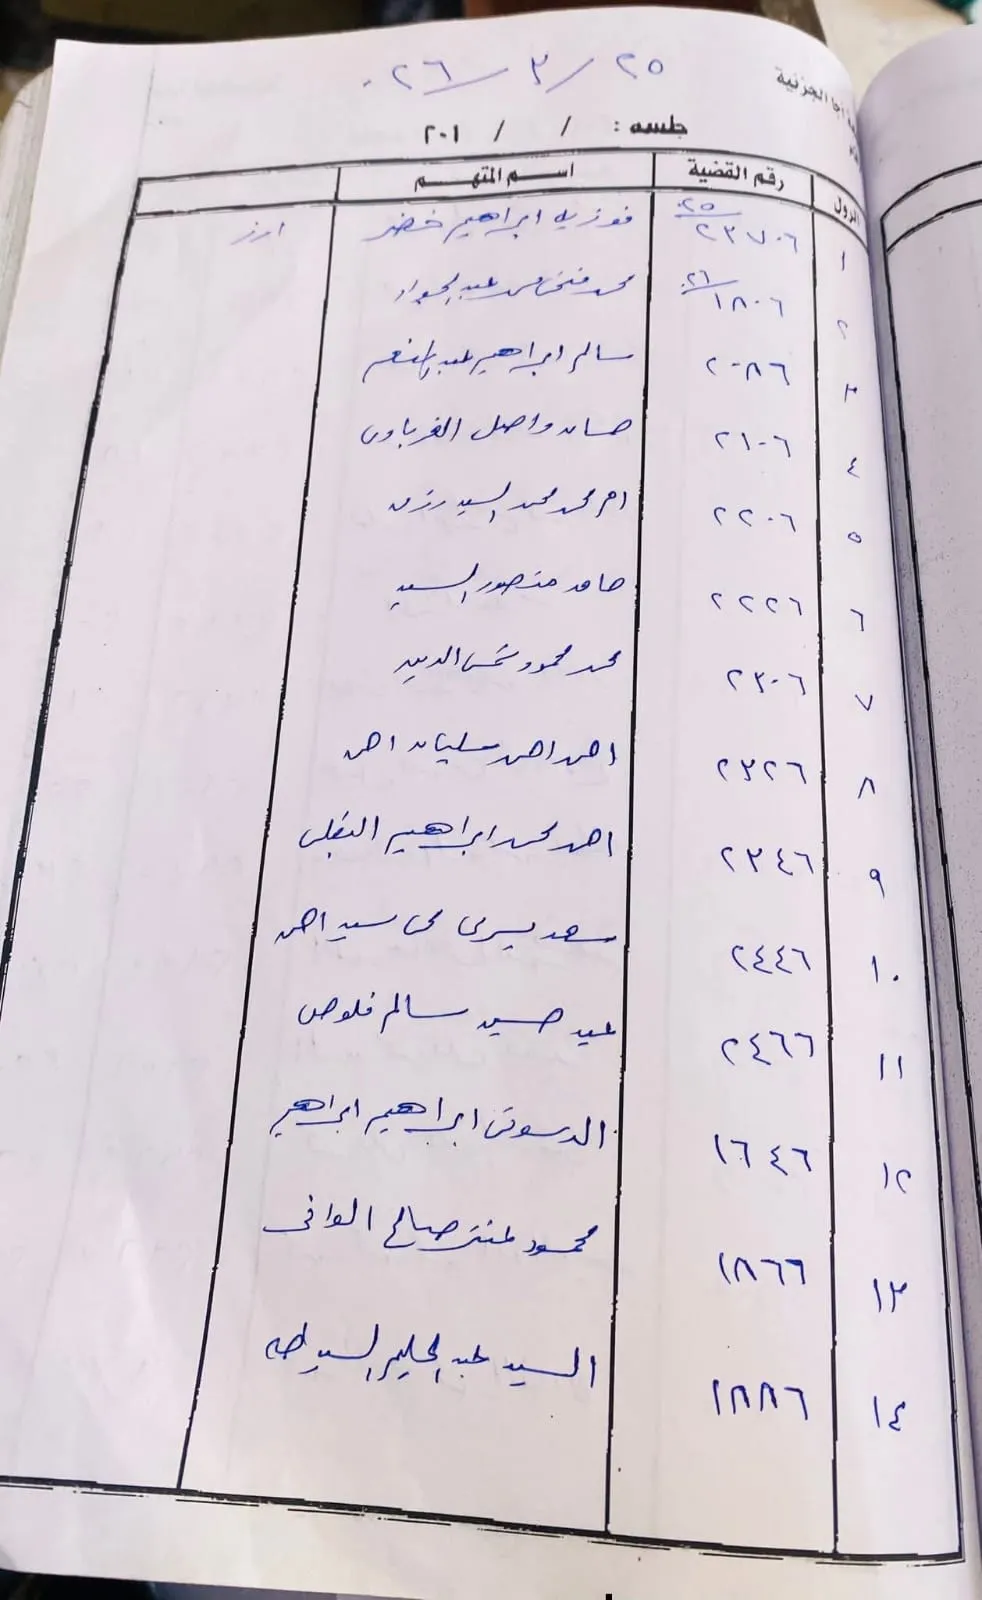 اجا الجزئية
٢٥ / ٣ / ٢٠٢٦
جلسه : / / ٢٠١
الرول رقم القضية اسم المتهم
١ ٢٣٧٠٦ / ٢٥ فوزيه ابراهيم خضر ارز
٢ ١٨٠٦ / ٢٦ محمد فتحى عبد الجواد
٣ ٢٠٨٦ سالم ابراهيم عبد المنعم
٤ ٢١٠٦ حسان واصل الغرباوى
٥ ٢٢٠٦ محمد محمد السيد رزق
٦ ٢٢٢٦ حامد منصور السيد
٧ ٢٣٠٦ محمد محمود شمس الدين
٨ ٢٣٢٦ احمد احمد سليمان احمد
٩ ٢٣٤٦ احمد محمد ابراهيم
١٠ ٢٤٤٦ سعد يسرى سيد احمد
١١ ٢٤٦٦ عيد حسين سالم
١٢ ١٦٤٦ الدسوقى ابراهيم ابراهيم
١٣ ١٨٦٦ محمود صالح الوافى
١٤ ١٨٨٦ السيد عبد الحليم السيد طه